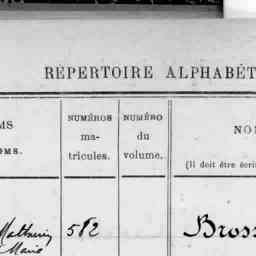 RÉPERTOIRE ALPHABÉT
MS
OMS.
NUMÉROS
ma-
tricules.
NUMÉRO
du
volume.
NO
(Il doit être écri
Mathurin
Marie
582
Bross